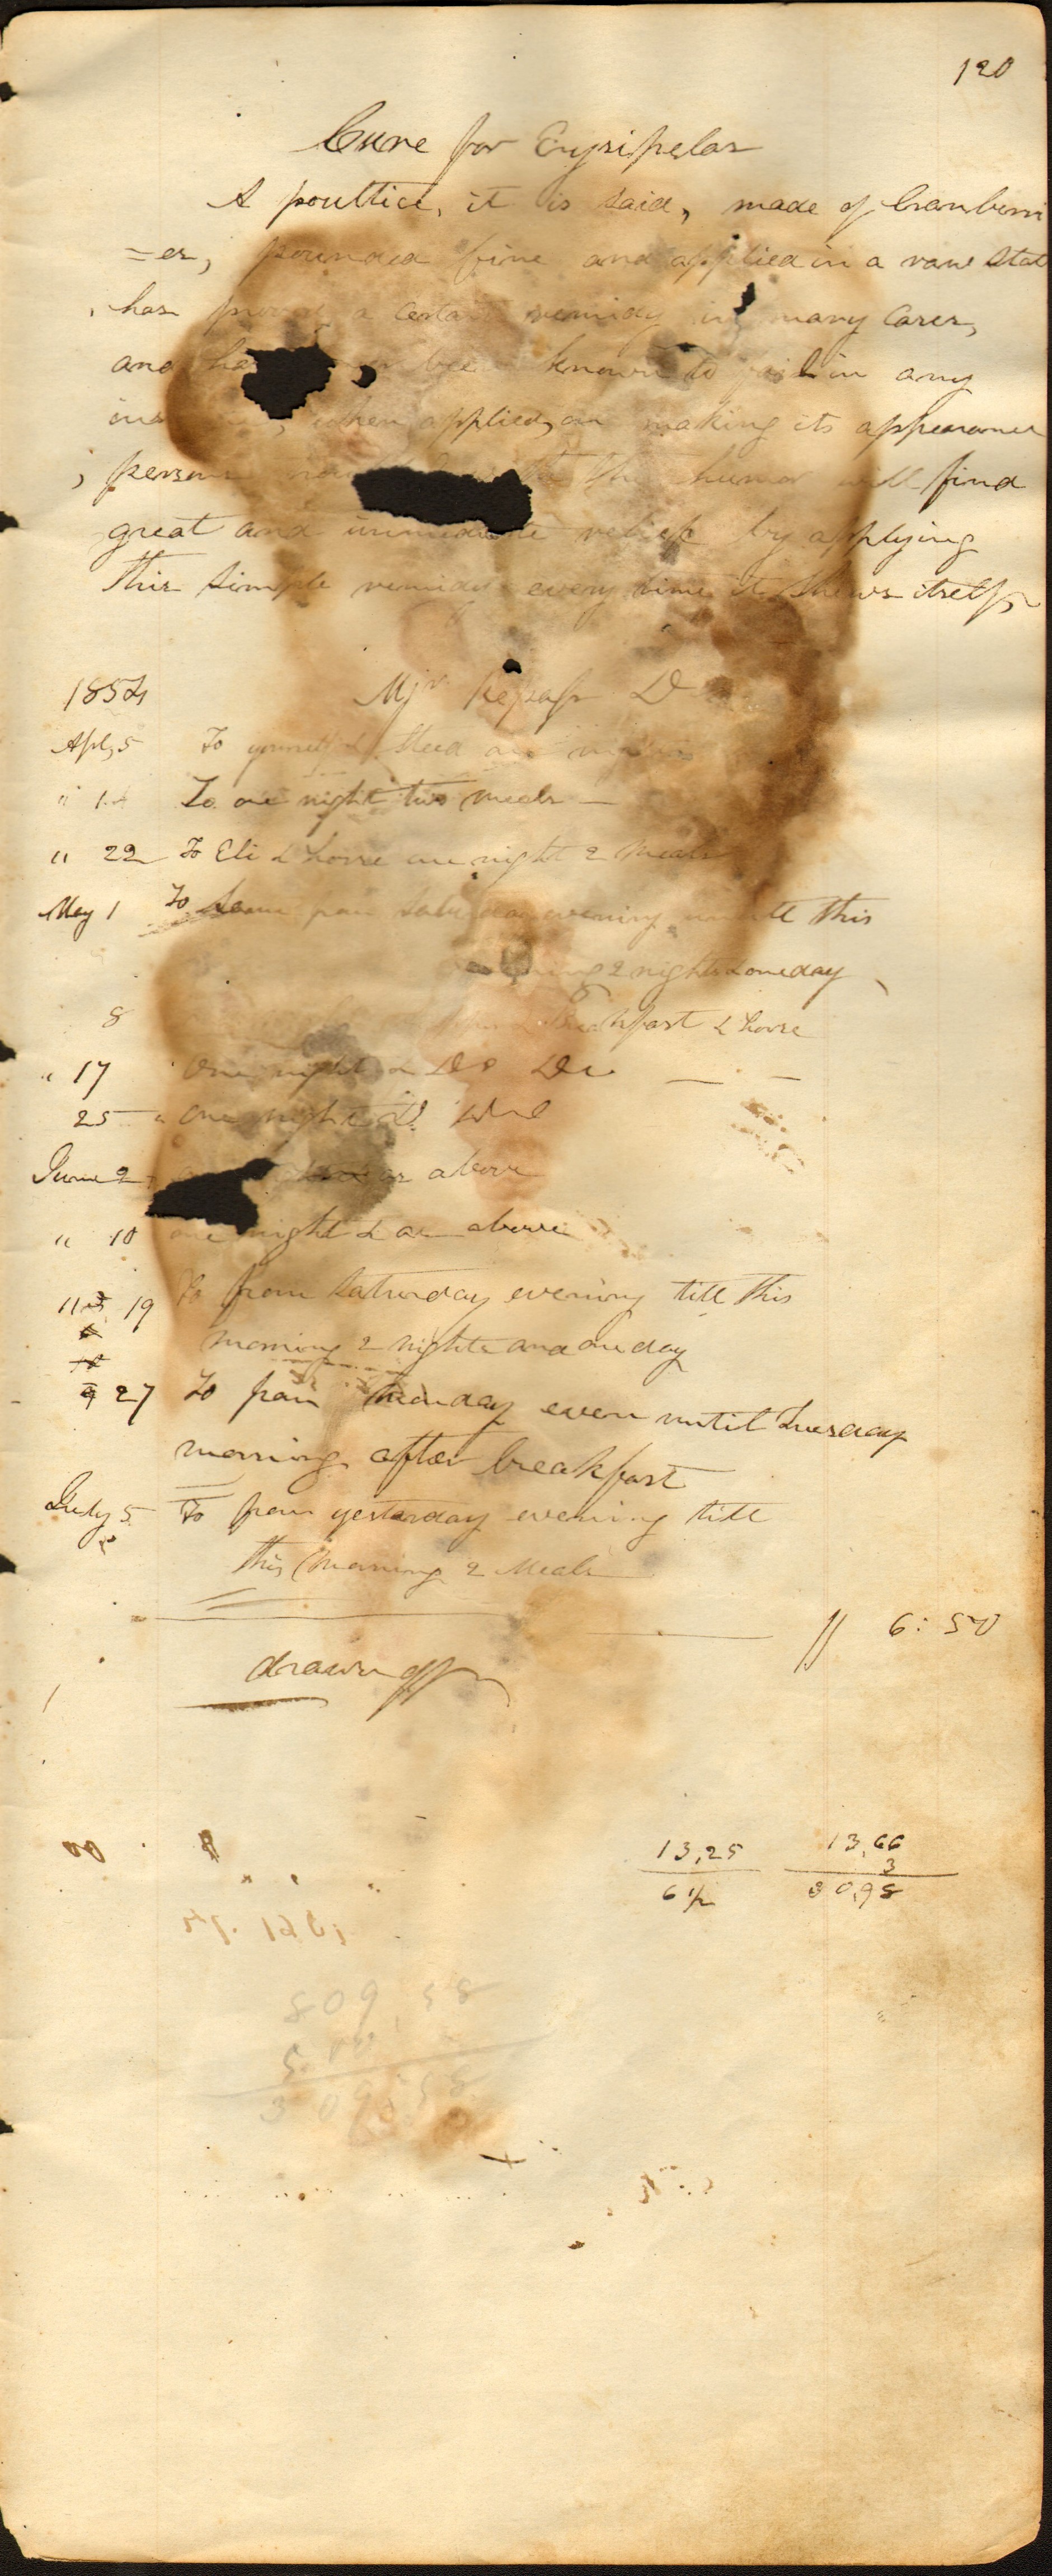 120
Cure for Erysipelas
A poultice, it is said, made of Cranberri
=es, pounded fine and applied in a raw stat
has proved a certain remidy in many cases,
and been known to fail in any
when applied, on making its appearance
persons the humor will find
great and immediate relief by applying
this simple remidy every time it shews itself
1854 Mjr Repass D
Apl, 5 To yourself & Steed one night
" 1 To one night two meals —
" 22 To Eli & horse one night 2 Meals
May 1 To from Saturday evening untill this
2 nights & one day
8 Breakfast & horse
" 17 One night & Do Do — —
25 " One night &
June 2 as above
" 10 one night & as above
19 To from Saturday evening till this
morning 2 nights and one day
27 To from Monday even until Tuesday
morning after breakfast
July 5 To from yesterday evening till
this Morning 2 Meals
6: 50
drawn off
13,25 13,66
6 1/2 3
30,98
809,58
5.00
309,58